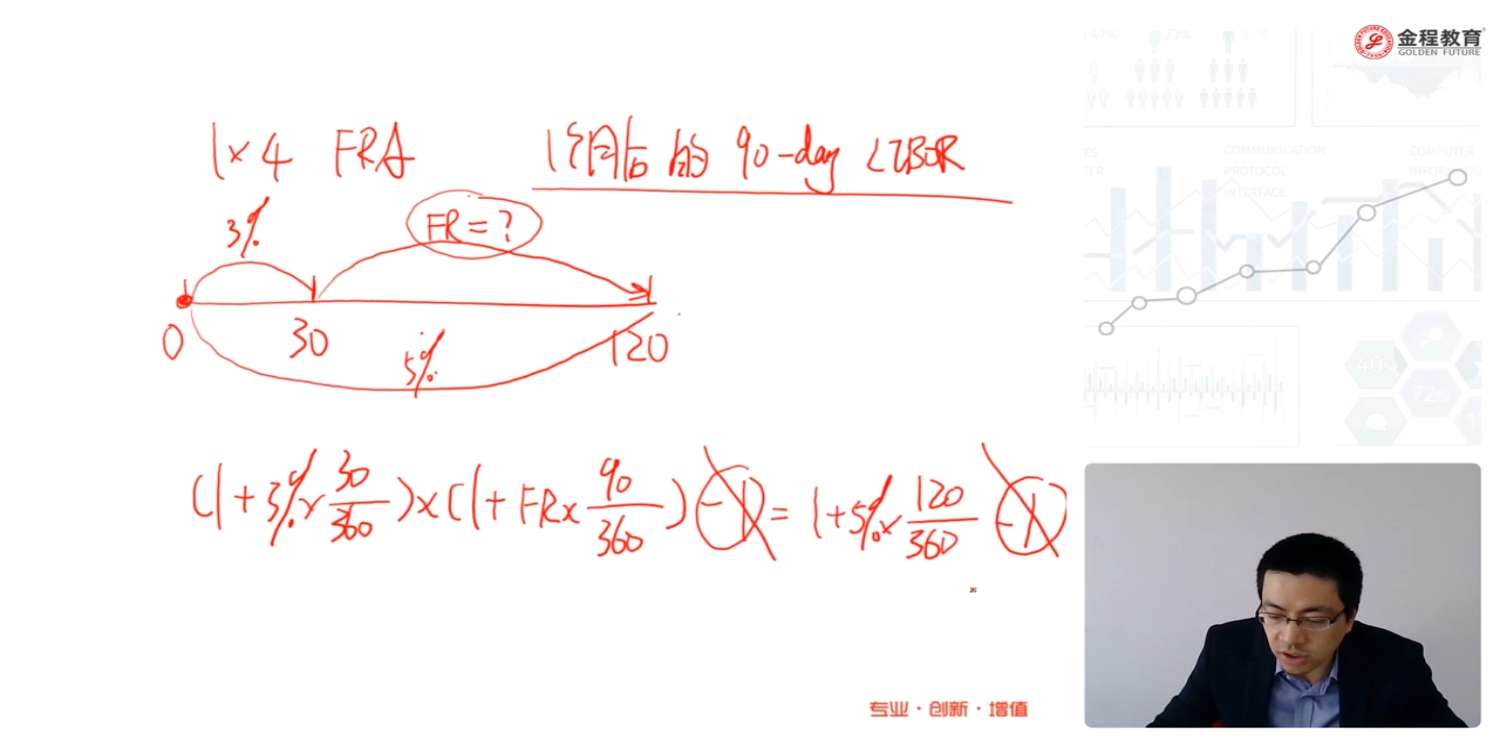 金程教育
GOLDEN FUTURE
1×4 FRA 1个月后的 90-day LIBOR
3% FR=?
0 30 5% 120
(1+3%×30/360)×(1+FR×90/360)-1=1+5%×120/360-1
COMMUNICATION
PROTOCOL
INTERFACE
COMPUTER
40%
72%
专业·创新·增值